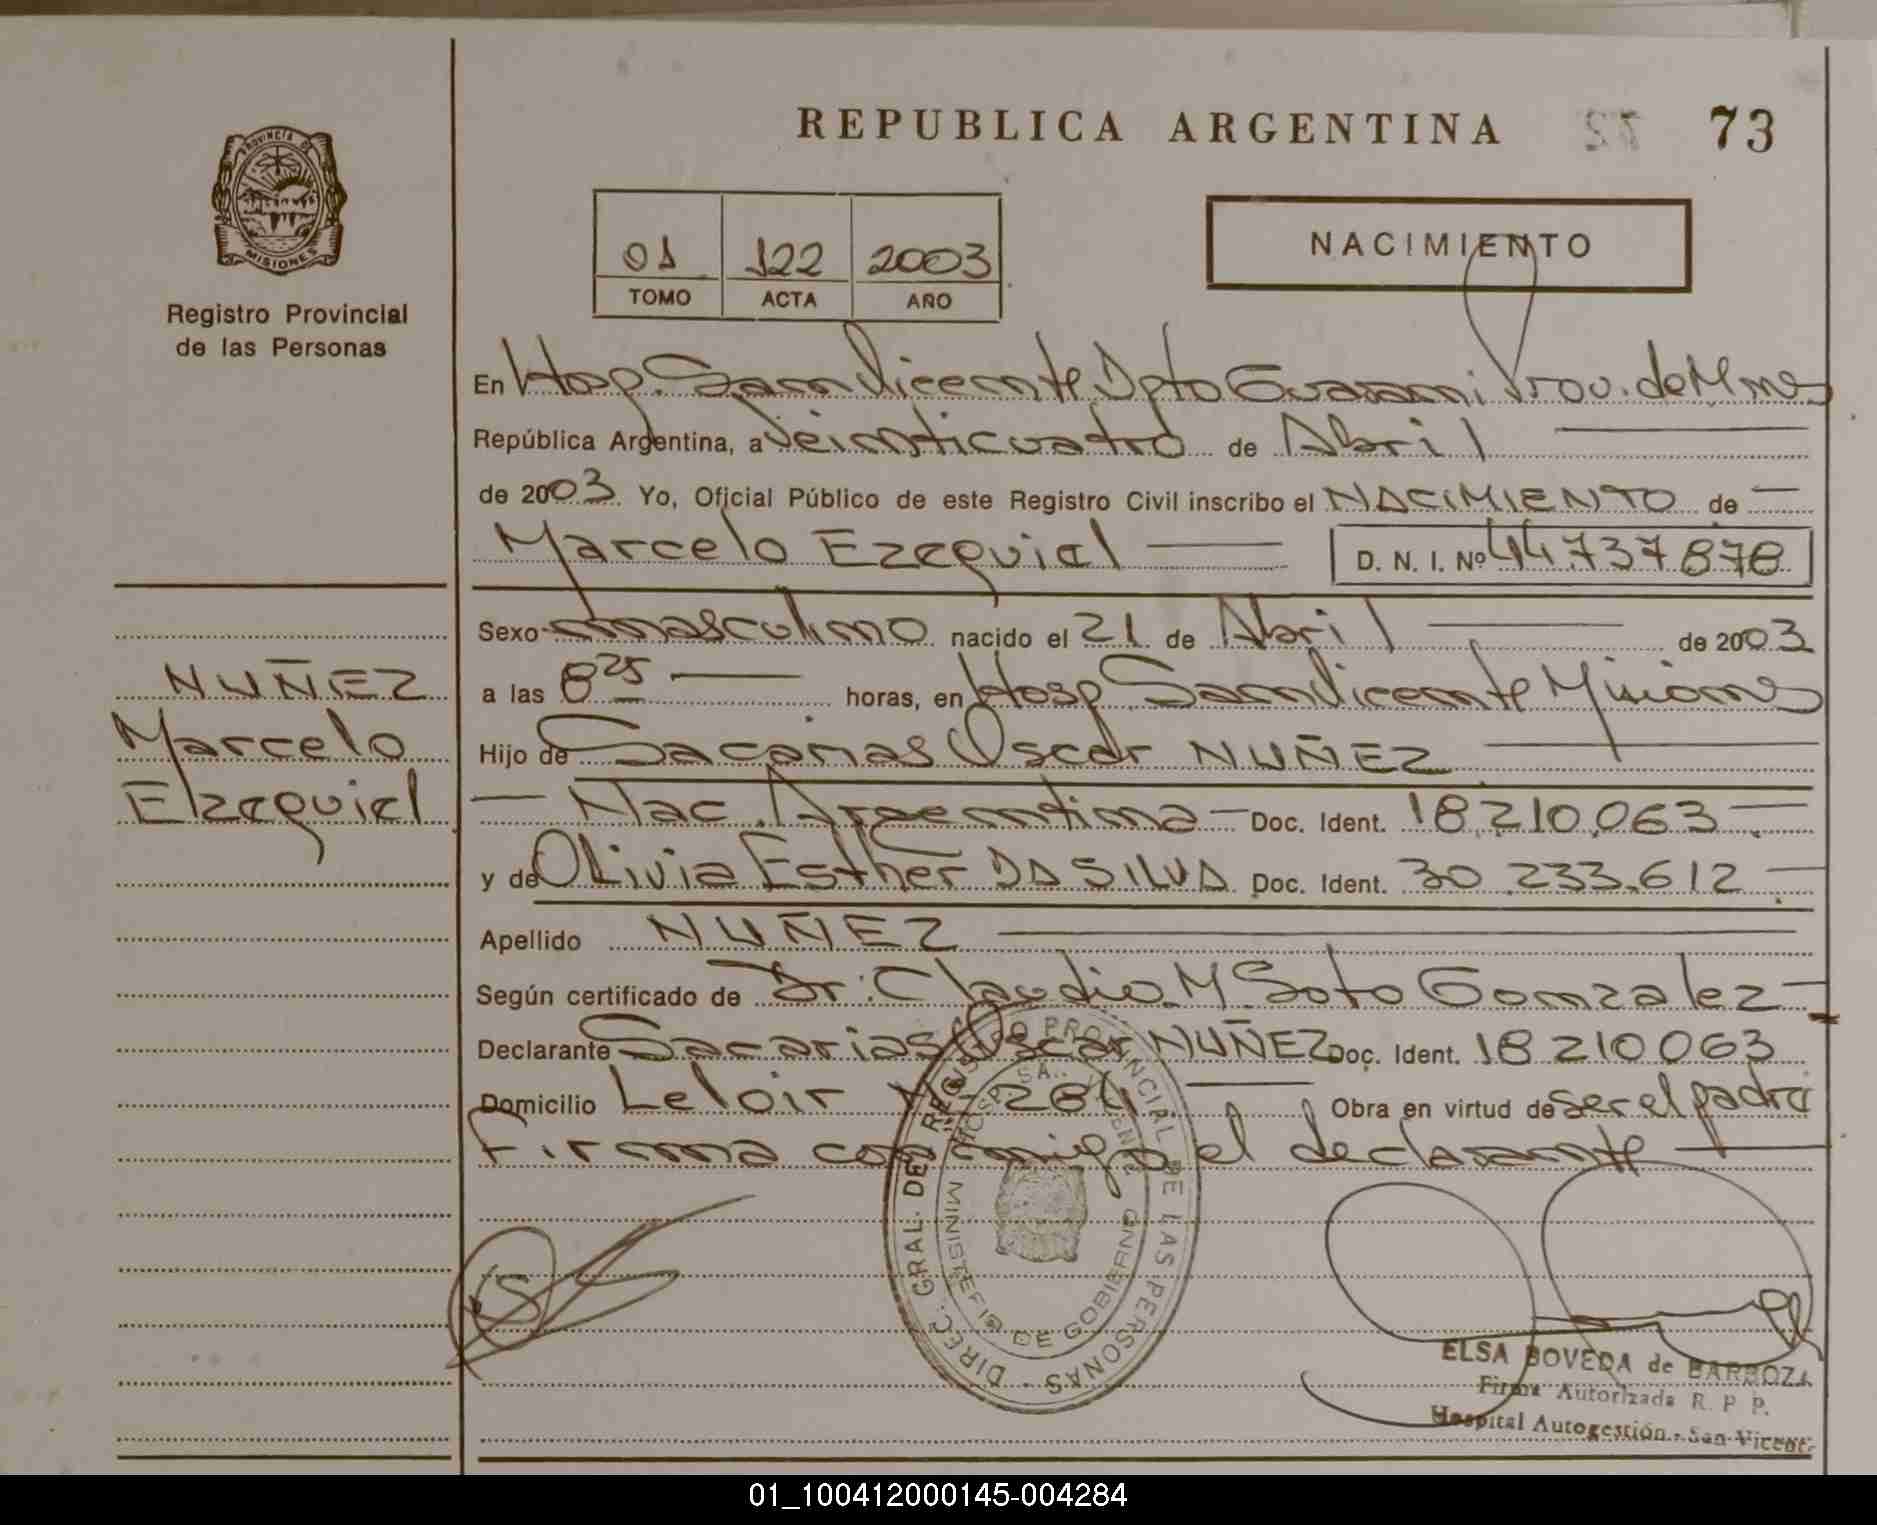 REPUBLICA ARGENTINA 72 73
PROVINCIA DE
MISIONES
Registro Provincial
de las Personas
01 122 2003
TOMO ACTA AÑO
NACIMIENTO
En Hosp. San Vicente Dpto Guarani Prov. de Mnes
República Argentina, a Veinticuatro de Abril
de 2003 Yo, Oficial Público de este Registro Civil inscribo el NACIMIENTO de
Marcelo Ezequiel D. N. I. Nº 44.737878
Sexo masculino nacido el 21 de Abril de 2003
a las 8 25 horas, en Hosp San Vicente Misiones
Hijo de Sacarias Oscar NUÑEZ
Nac. Argentina Doc. Ident. 18.210.063
y de Olivia Esther DA SILVA Doc. Ident. 30.233.612
Apellido NUÑEZ
Según certificado de Dr: Claudio M. Soto Gonzalez
Declarante Sacarias Oscar NUÑEZ Doc. Ident. 18210063
Domicilio Leloir Nº 284 Obra en virtud de ser el padre
Firma conmigo el declarante
NUÑEZ
Marcelo
Ezequiel
DIREC. GRAL. DEL REGISTRO PROVINCIAL DE LAS PERSONAS
MINISTERIO DE GOBIERNO
ELSA BOVEDA de BARBOZA
Firma Autorizada R. P. P.
Hospital Autogestión - San Vicente
01_100412000145-004284